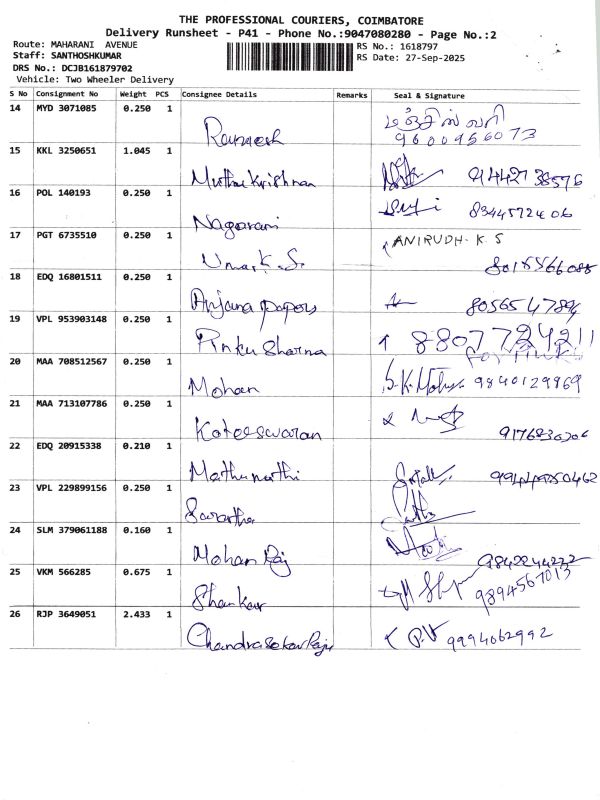 THE PROFESSIONAL COURIERS, COIMBATORE
Delivery Runsheet - P41 - Phone No.:9047080280 - Page No.:2
Route: MAHARANI AVENUE
RS No.: 1618797
Staff: SANTHOSHKUMAR
RS Date: 27-Sep-2025
DRS No.: DCJB161879702
Vehicle: Two Wheeler Delivery
S No Consignment No Weight PCS Consignee Details Remarks Seal & Signature
14 MYD 3071085 0.250 1
Ramesh 9600956073
15 KKL 3250651 1.045 1
Muthu Krishnan
16 POL 140193 0.250 1
Nagarani
17 PGT 6735510 0.250 1 ANIRUDH. K. S
Umar K. S.
18 EDQ 16801511 0.250 1
Anjana papers
19 VPL 953903148 0.250 1
Pinku Sharma 8807724211
20 MAA 708512567 0.250 1
Mohan 9840129969
21 MAA 713107786 0.250 1
Koteeswaran
22 EDQ 20915338 0.210 1
Mathumathi
23 VPL 229899156 0.250 1
24 SLM 379061188 0.160 1
Mohan Raj
25 VKM 566285 0.675 1 9894567013
Shankar
26 RJP 3649051 2.433 1 P.V 9994062992
Chandrasekar Raju